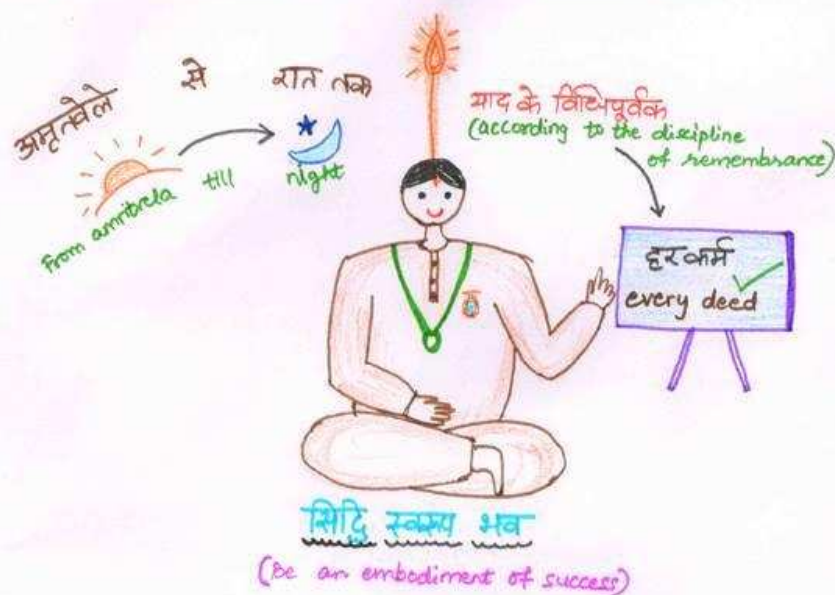 अमृतवेले से रात तक
From amritvela till night
याद के विधिपूर्वक
(according to the discipline
of remembrance)
हर कर्म
every deed
सिद्धि स्वरूप भव
(Be an embodiment of success)